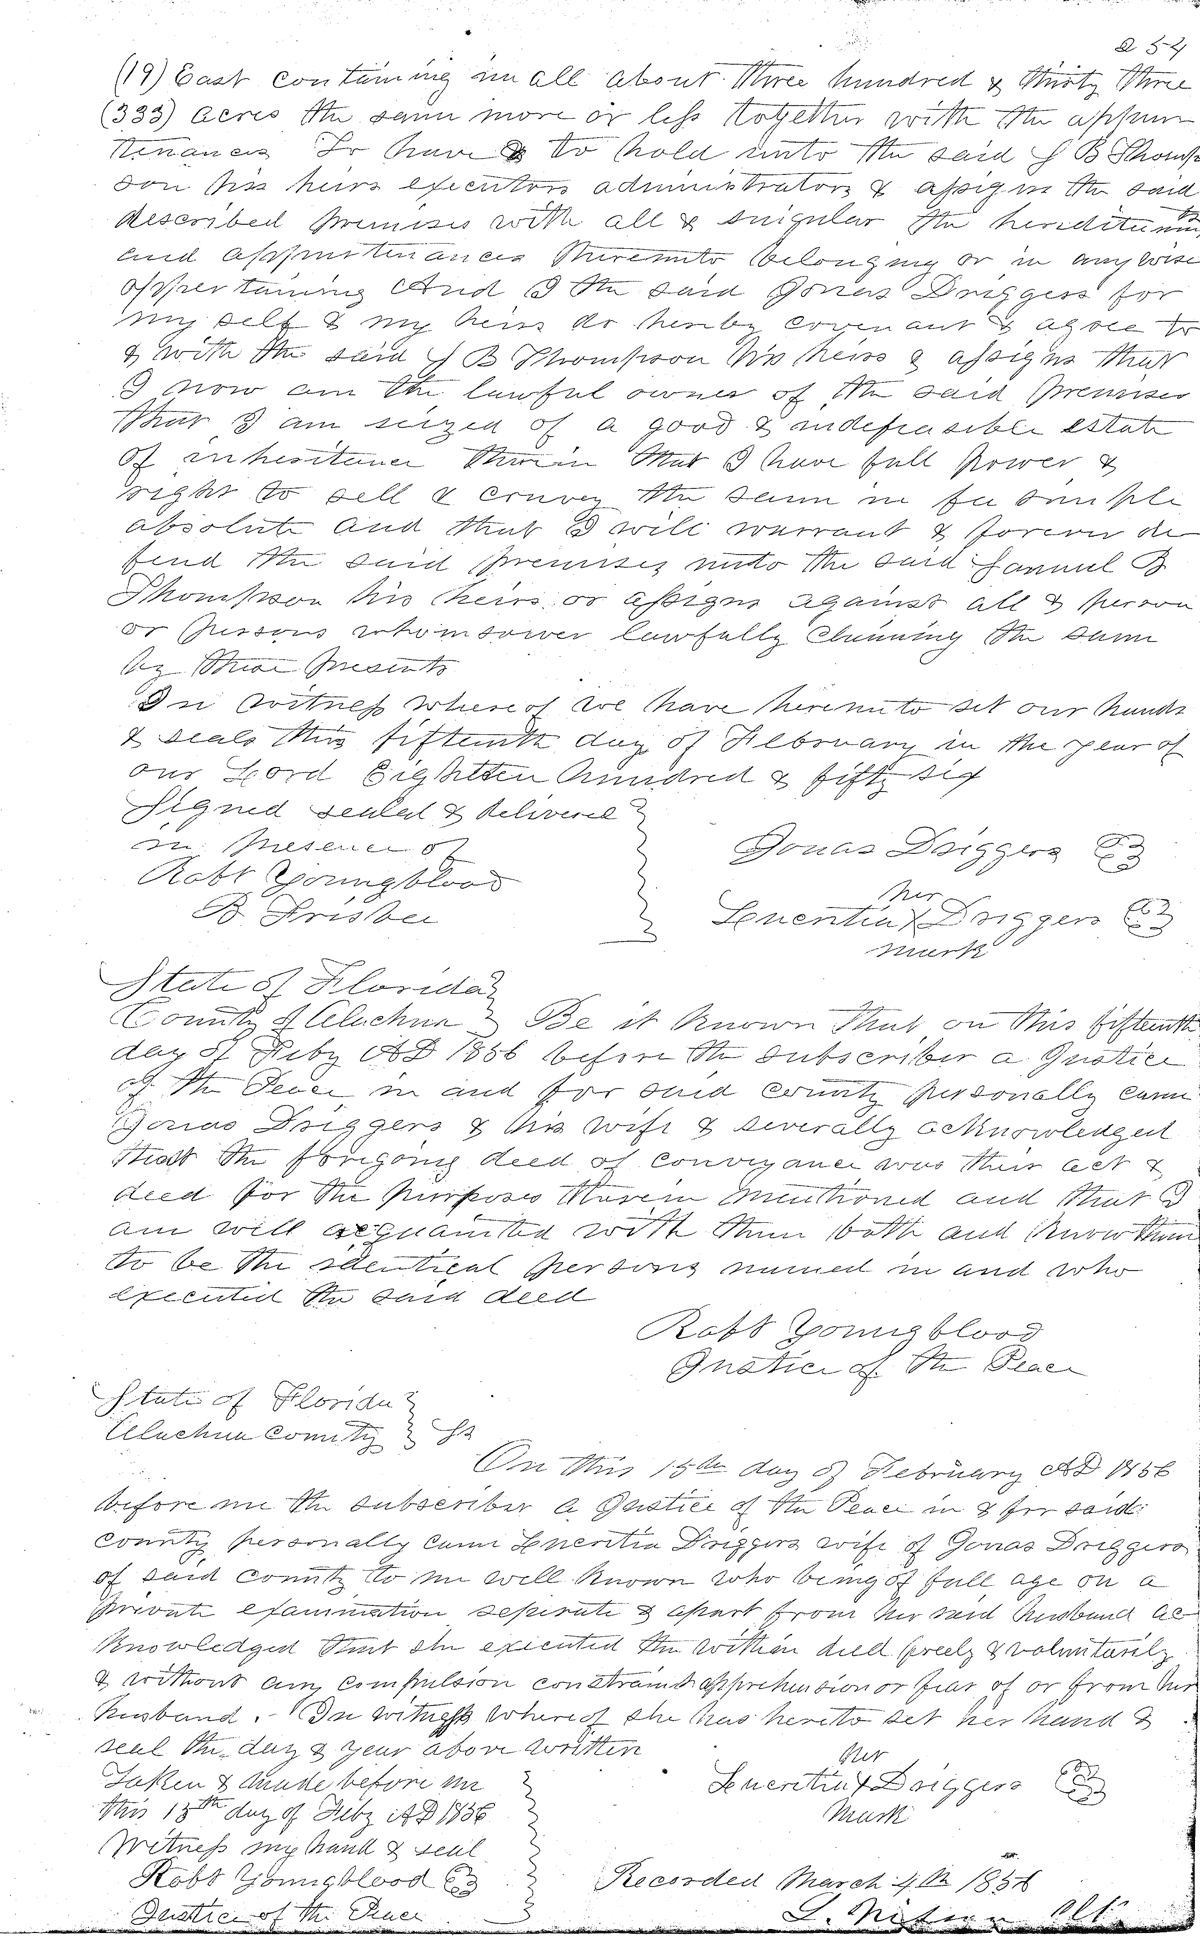 254
(19) East containing in all about three hundred & thirty three
(333) acres the same more or less together with the appur
tenances To have & to hold unto the said S B Thomp
son his heirs executors administrators & assigns the said
described premises with all & singular the hereditaments
and appurtenances thereunto belonging or in any wise
appertaining And I the said Jonas Driggers for
my self & my heirs do hereby covenant & agree to
& with the said S B Thompson his heirs & assigns that
I now am the lawful owner of the said premises
that I am seized of a good & indefeasible estate
of inheritance therein that I have full power &
right to sell & convey the same in fee simple
absolute and that I will warrant & forever de
fend the said premises unto the said Samuel B
Thompson his heirs or assigns against all & person
or persons whomsoever lawfully claiming the same
by these presents
In witness whereof we have hereunto set our hands
& seals this fifteenth day of February in the year of
our Lord Eighteen hundred & fifty six
Signed sealed & delivered
in presence of
Jonas Driggers
Robt Youngblood
her
B Frisbee
Lucretia X Driggers
mark
State of Florida
County of Alachua Be it known that on this fifteenth
day of Feby AD 1856 before the subscriber a Justice
of the Peace in and for said county personally came
Jonas Driggers & his wife & severally acknowledged
that the foregoing deed of conveyance was their act &
deed for the purposes therein mentioned and that I
am well acquainted with them both and know them
to be the identical persons named in and who
executed the said deed
Robt Youngblood
Justice of the Peace
State of Florida
Alachua County SS
On this 15th day of February AD 1856
before me the subscriber a Justice of the Peace in & for said
county personally came Lucretia Driggers wife of Jonas Driggers
of said county to me well known who being of full age on a
private examination seperate & apart from her said husband ac
knowledged that she executed the within deed freely & voluntarily
& without any compulsion constraint apprehension or fear of or from her
husband. - In witness whereof she has hereto set her hand &
seal the day & year above written
her
Taken & made before me
Lucretia X Driggers
this 15th day of Feby AD 1856
mark
Witness my hand & seal
Robt Youngblood
Recorded March 4th 1856
Justice of the Peace
L.